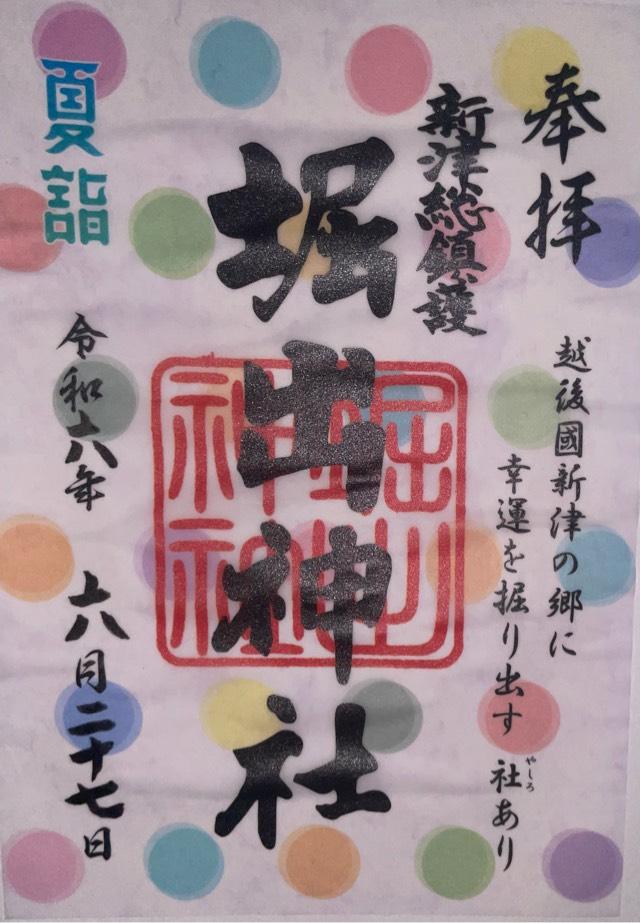 奉拝
越後國新津の郷に
幸運を掘り出す 社あり
やしろ
新津総鎮護
堀出神社
堀出神社
夏詣
令和六年 六月二十七日